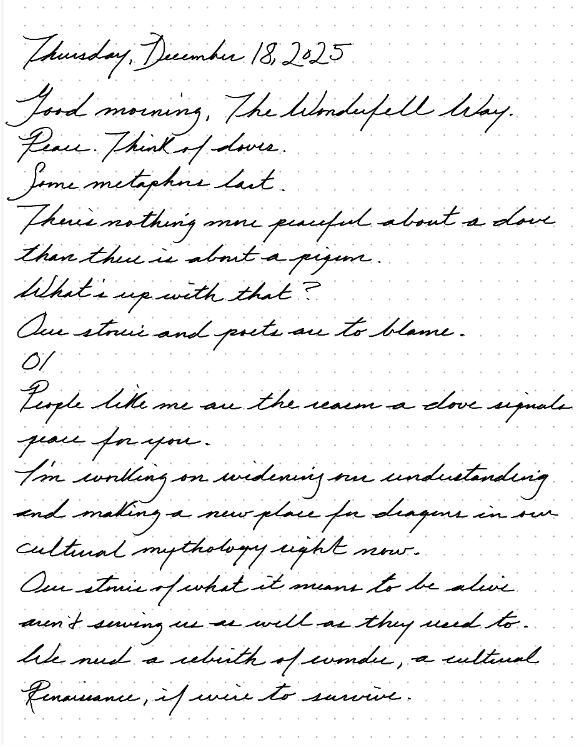 Thursday, December 18, 2025
Good morning, The Wonderfell Way.
Peace. Think of doves.
Some metaphors last.
There's nothing more peaceful about a dove
than there is about a pigeon.
What's up with that?
Our stories and poets are to blame.
01
People like me are the reason a dove signals
peace for you.
I'm working on widening our understanding
and making a new place for dragons in our
cultural mythology right now.
Our stories of what it means to be alive
aren't serving us as well as they used to.
We need a rebirth of wonder, a cultural
Renaissance, if we're to survive.